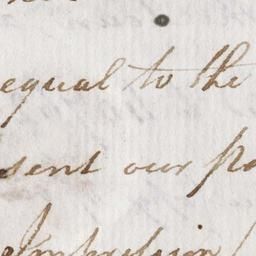 equal to the
sent our
Impression